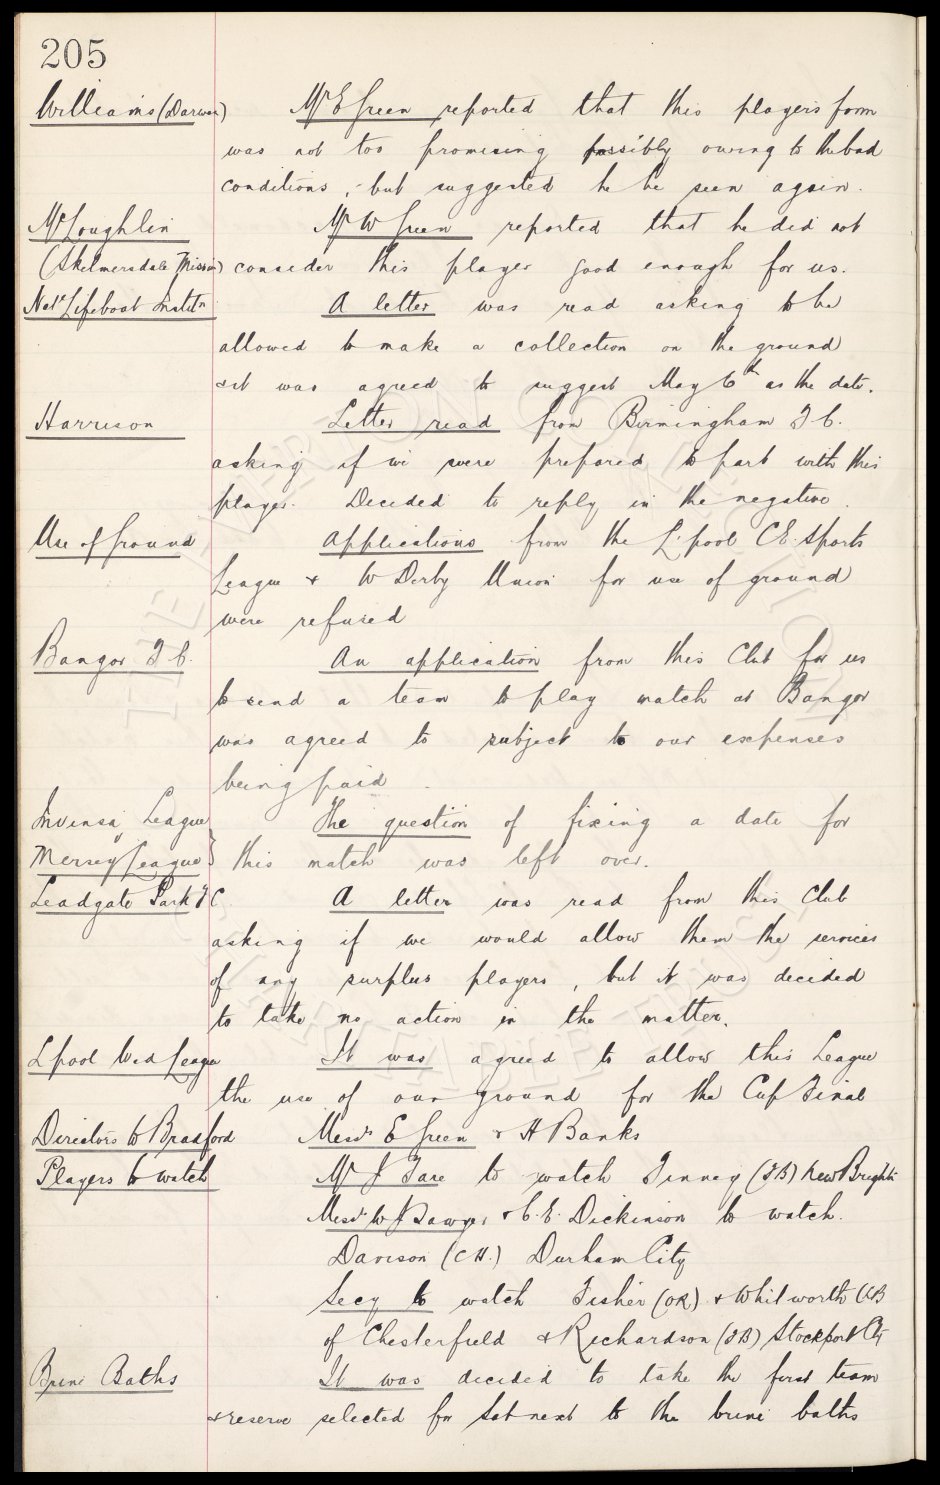 205
Williams (Darwen) Mr E Green reported that this players form
was not too promising possibly owing to the bad
conditions, but suggested he be seen again.
McLoughlin Mr W Green reported that he did not
(Skelmersdale Mission) consider this player good enough for us.
Natl Lifeboat Instn A letter was read asking to be
allowed to make a collection on the ground
& it was agreed to suggest May 6th as the date.
Harrison Letter read from Birmingham F C.
asking if we were prepared to part with this
player. Decided to reply in the negative.
Use of Ground Applications from the L'pool C E. Sports
League & W Derby Union for use of ground
were refused
Bangor F C. An application from this Club for us
to send a team to play match at Bangor
was agreed to subject to our expenses
being paid.
Invensa League The question of fixing a date for
Mersey League } this match was left over.
Leadgate Park F C. A letter was read from this Club
asking if we would allow them the services
of any surplus players, but it was decided
to take no action in the matter.
Lpool Wed League It was agreed to allow this League
the use of our ground for the Cup Final
Directors to Bradford Messrs E Green & H Banks
Players to watch Mr J Fare to watch Finney (IB) New Brighton
Messrs W J Sawyer & C. E. Dickinson to watch.
Davison (CH.) Durham City
Secy to watch Fisher (OR) & Whitworth (CB
of Chesterfield & Richardson (IB) Stockport Cty
Brine Baths It was decided to take the first team
& reserve selected for Sat next to the brine baths
THE EVERTON